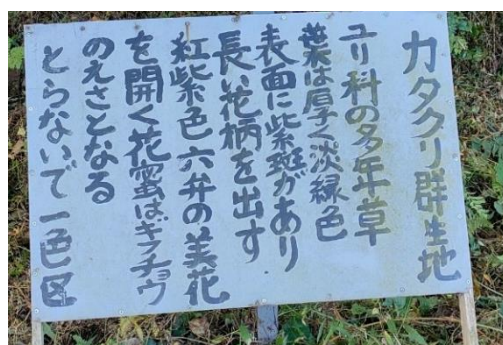 カタクリ群生地
ユリ科の多年草
葉は厚く淡緑色
表面に紫斑があり
長い花柄を出す
紅紫色六弁の美花
を開く花蜜はギフチョウ
のえさとなる
とらないで一色区